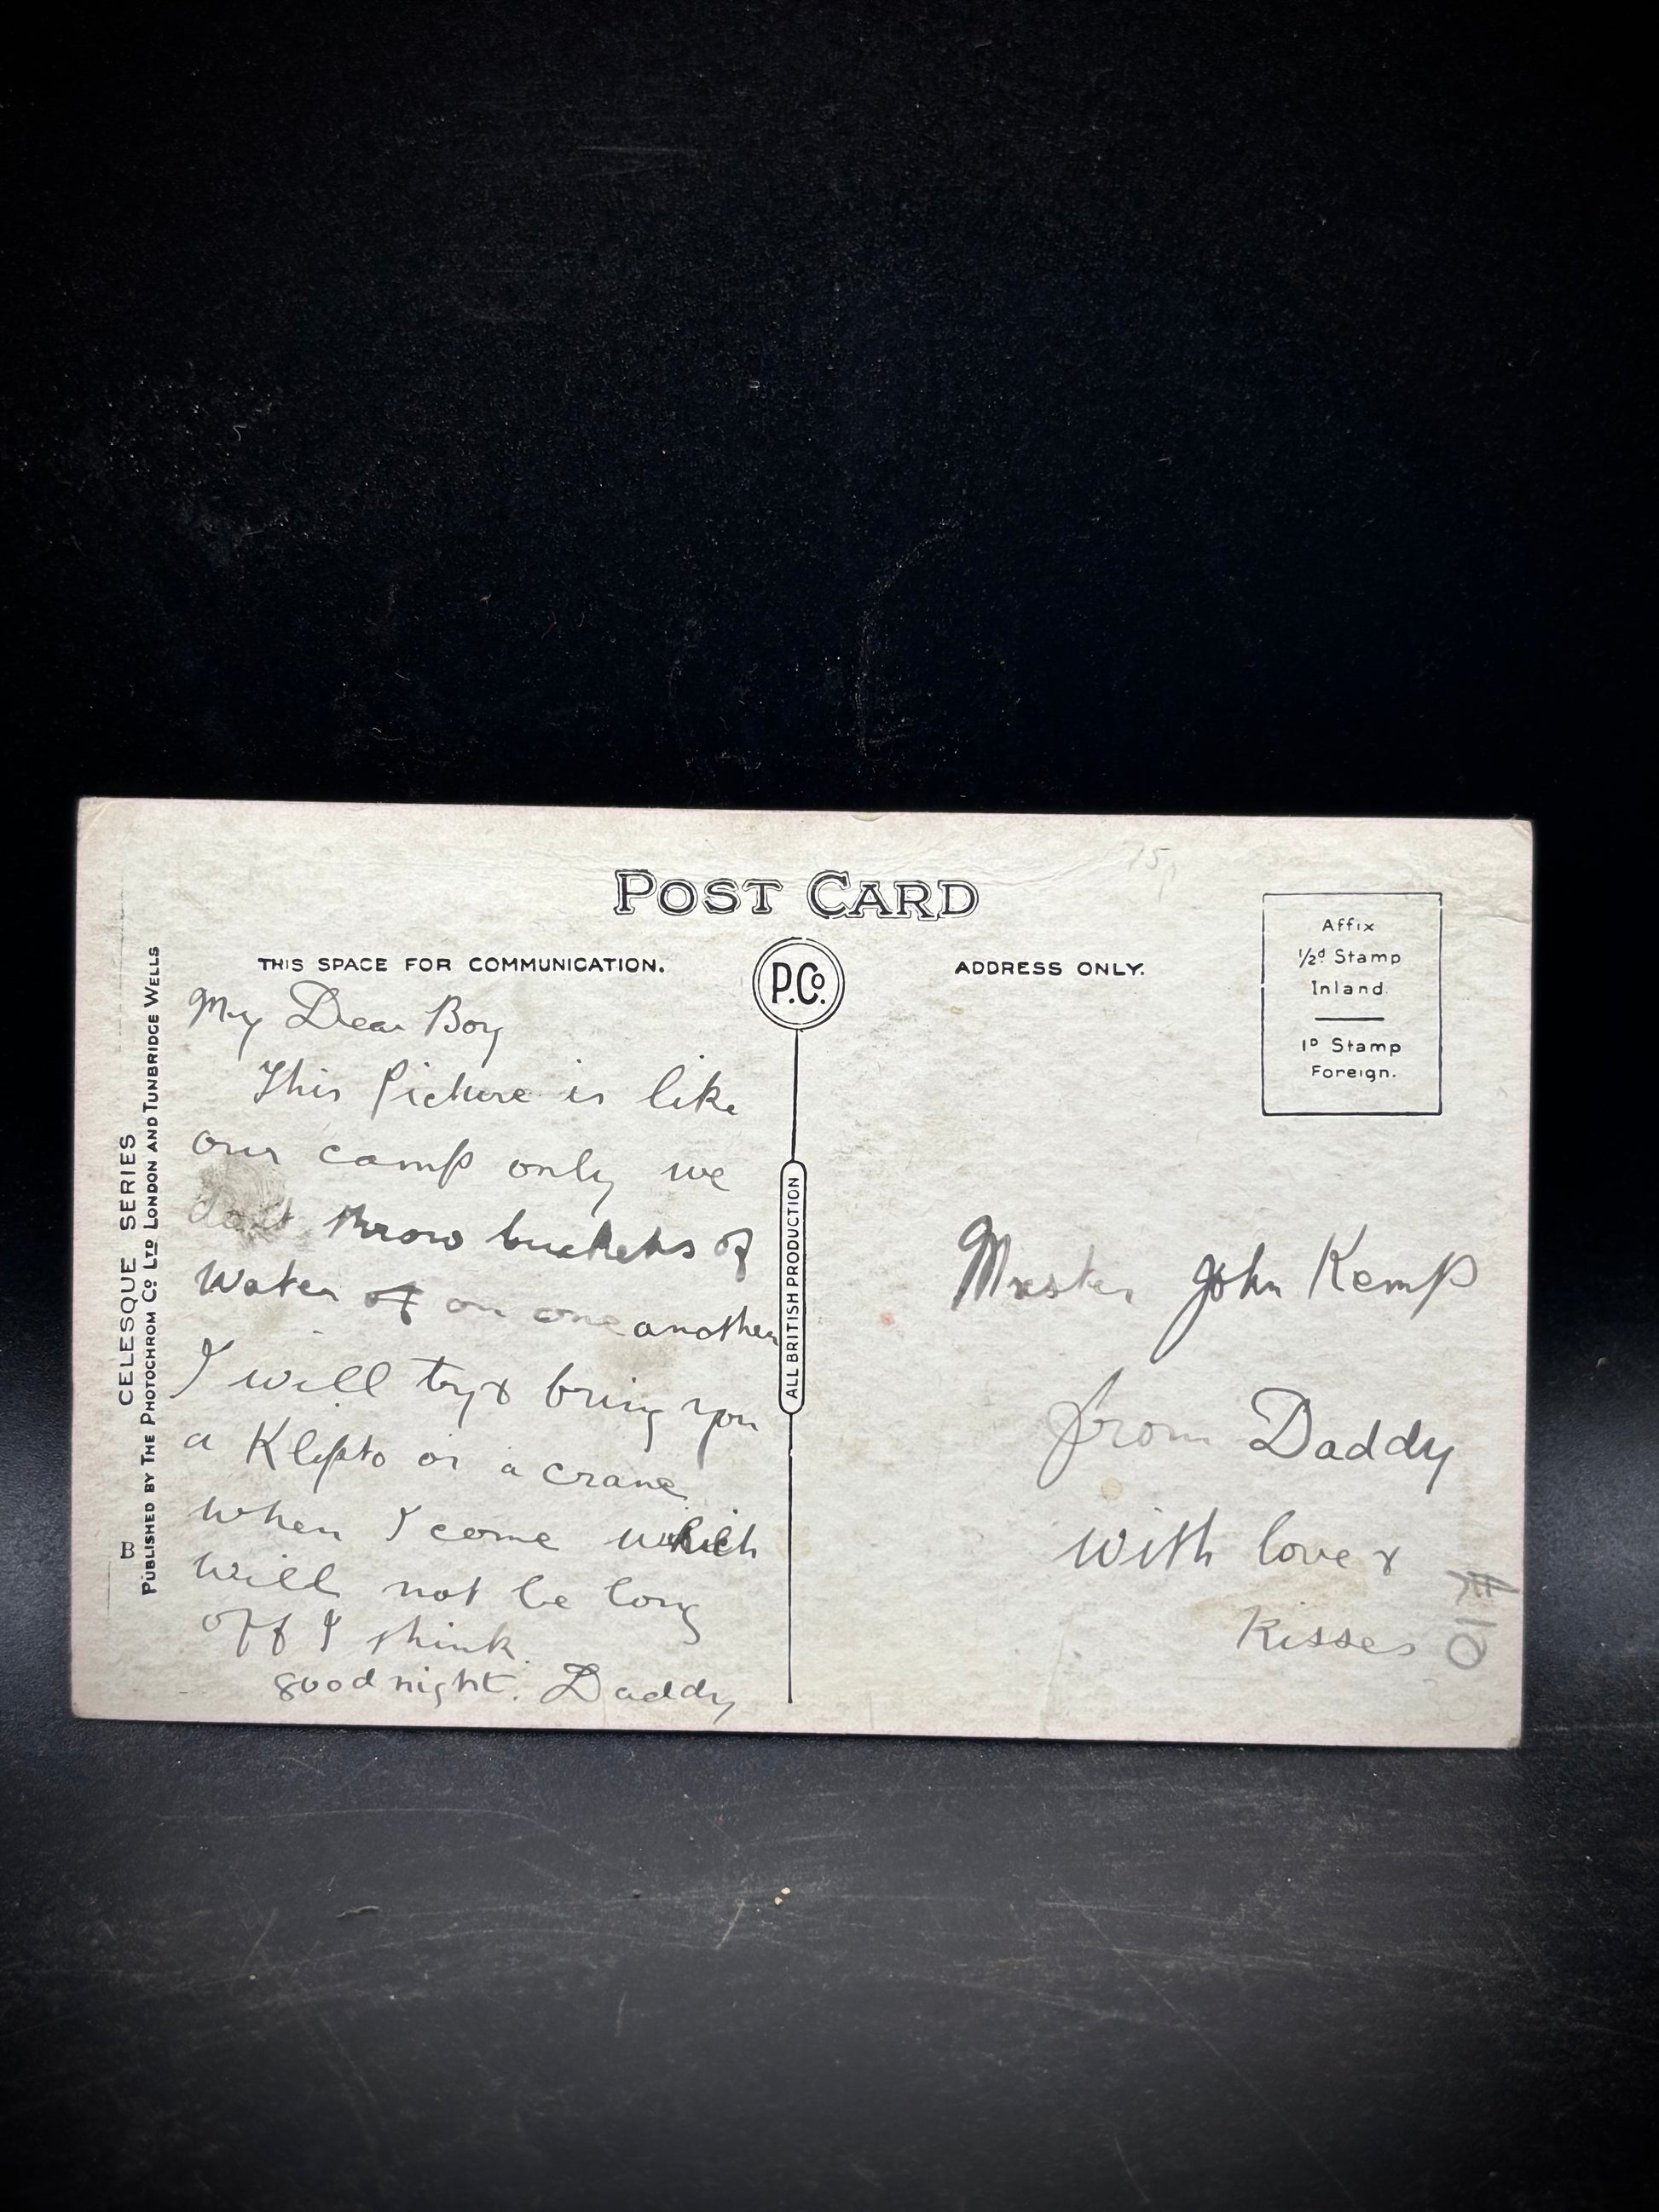 POST CARD
THIS SPACE FOR COMMUNICATION.
P.Co.
ADDRESS ONLY.
Affix
1/2d Stamp
Inland
1D Stamp
Foreign.
CELESQUE SERIES
PUBLISHED BY THE PHOTOCHROM Co LTD LONDON AND TUNBRIDGE WELLS
B
ALL BRITISH PRODUCTION
My Dear Boy
This Picture is like
our camp only we
don't throw buckets of
water of on one another
I will try & bring you
a Klepto or a crane
when I come which
will not be long
off I think.
good night. Daddy
Master John Kemp
from Daddy
with love &
Kisses
75p